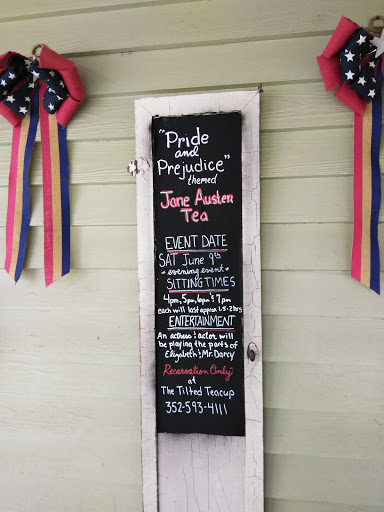 "Pride
and
Prejudice"
themed
Jane Austen
Tea
EVENT DATE
SAT June 9th
evening event
SITTING TIMES
4pm, 5pm, 6pm & 7pm
each will last approx 1.5-2 hrs
ENTERTAINMENT
An actress & actor will
be playing the parts of
Elizabeth & Mr. Darcy
Reservation Only
at
The Tilted Teacup
352-593-4111